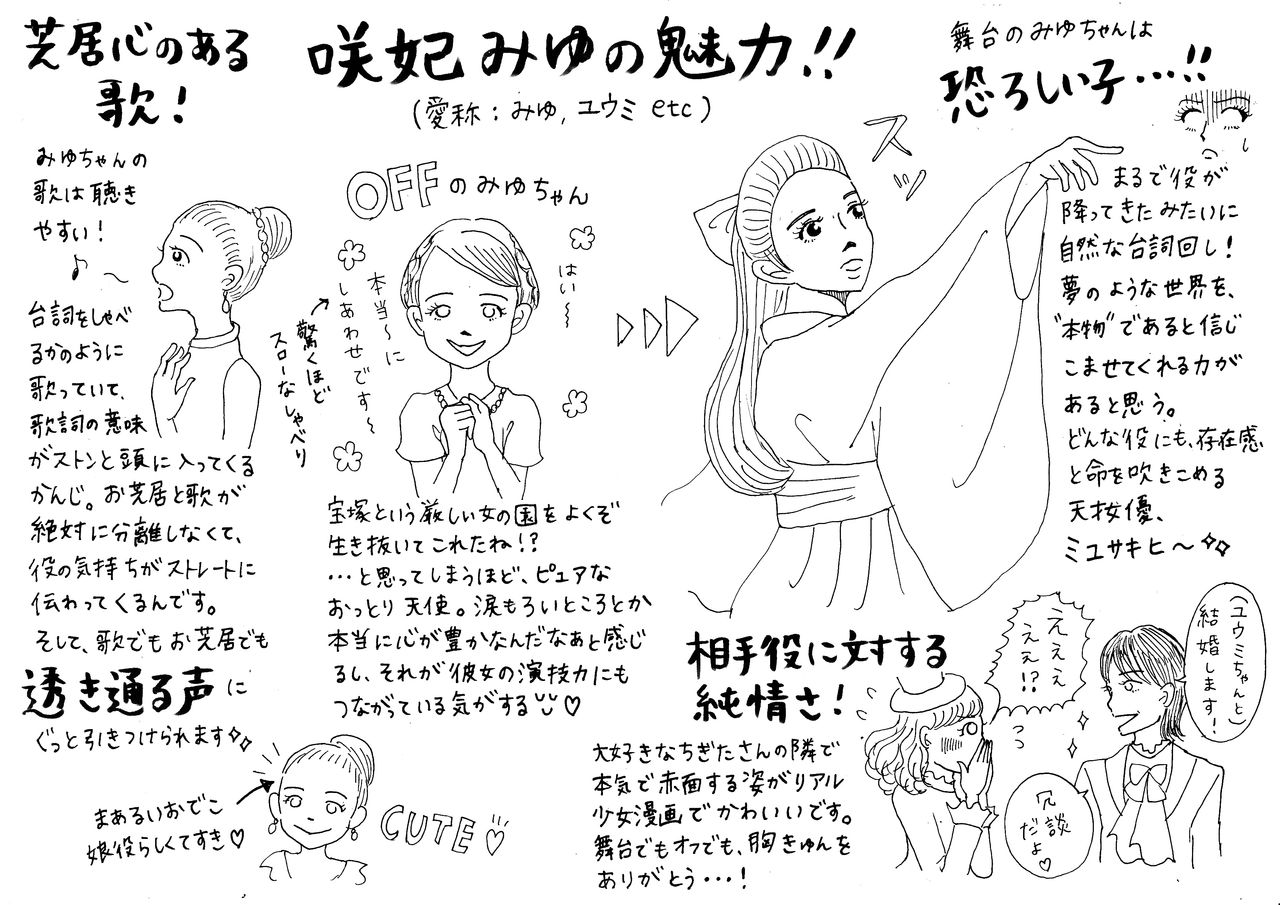 咲妃みゆの魅力!!
(愛称:みゆ,ユウミ etc)
芝居心のある
歌!
みゆちゃんの
歌は聴き
やすい!
♪〜
台詞をしゃべ
るかのように
歌っていて、
歌詞の意味
がストンと頭に入ってくる
かんじ。お芝居と歌が
絶対に分離しなくて、
役の気持ちがストレートに
伝わってくるんです。
そして、歌でもお芝居でも
透き通る声に
ぐっと引きつけられます
まあるいおでこ
娘役らしくてすき♡
CUTE
OFFのみゆちゃん
はい〜
本当〜に
しあわせです〜
驚くほど
スローなしゃべり
宝塚という厳しい女の園をよくぞ
生き抜いてこれたね!?
…と思ってしまうほど、ピュアな
おっとり天使。涙もろいところとか
本当に心が豊かなんだなぁと感じ
るし、それが彼女の演技力にも
つながっている気がする♡
舞台のみゆちゃんは
恐ろしい子…!!
スッ
まるで役が
降ってきたみたいに
自然な台詞回し!
夢のような世界を、
"本物"であると信じ
こませてくれる力が
あると思う。
どんな役にも、存在感
と命を吹きこめる
天才女優、
ミユサキヒ〜
相手役に対する
純情さ!
大好きなちぎたさんの隣で
本気で赤面する姿がリアル
少女漫画でかわいいです。
舞台でもオフでも、胸きゅんを
ありがとう…!
(ユウミちゃんと)
結婚します!
えええ
ええ!?
冗談
だよ♡